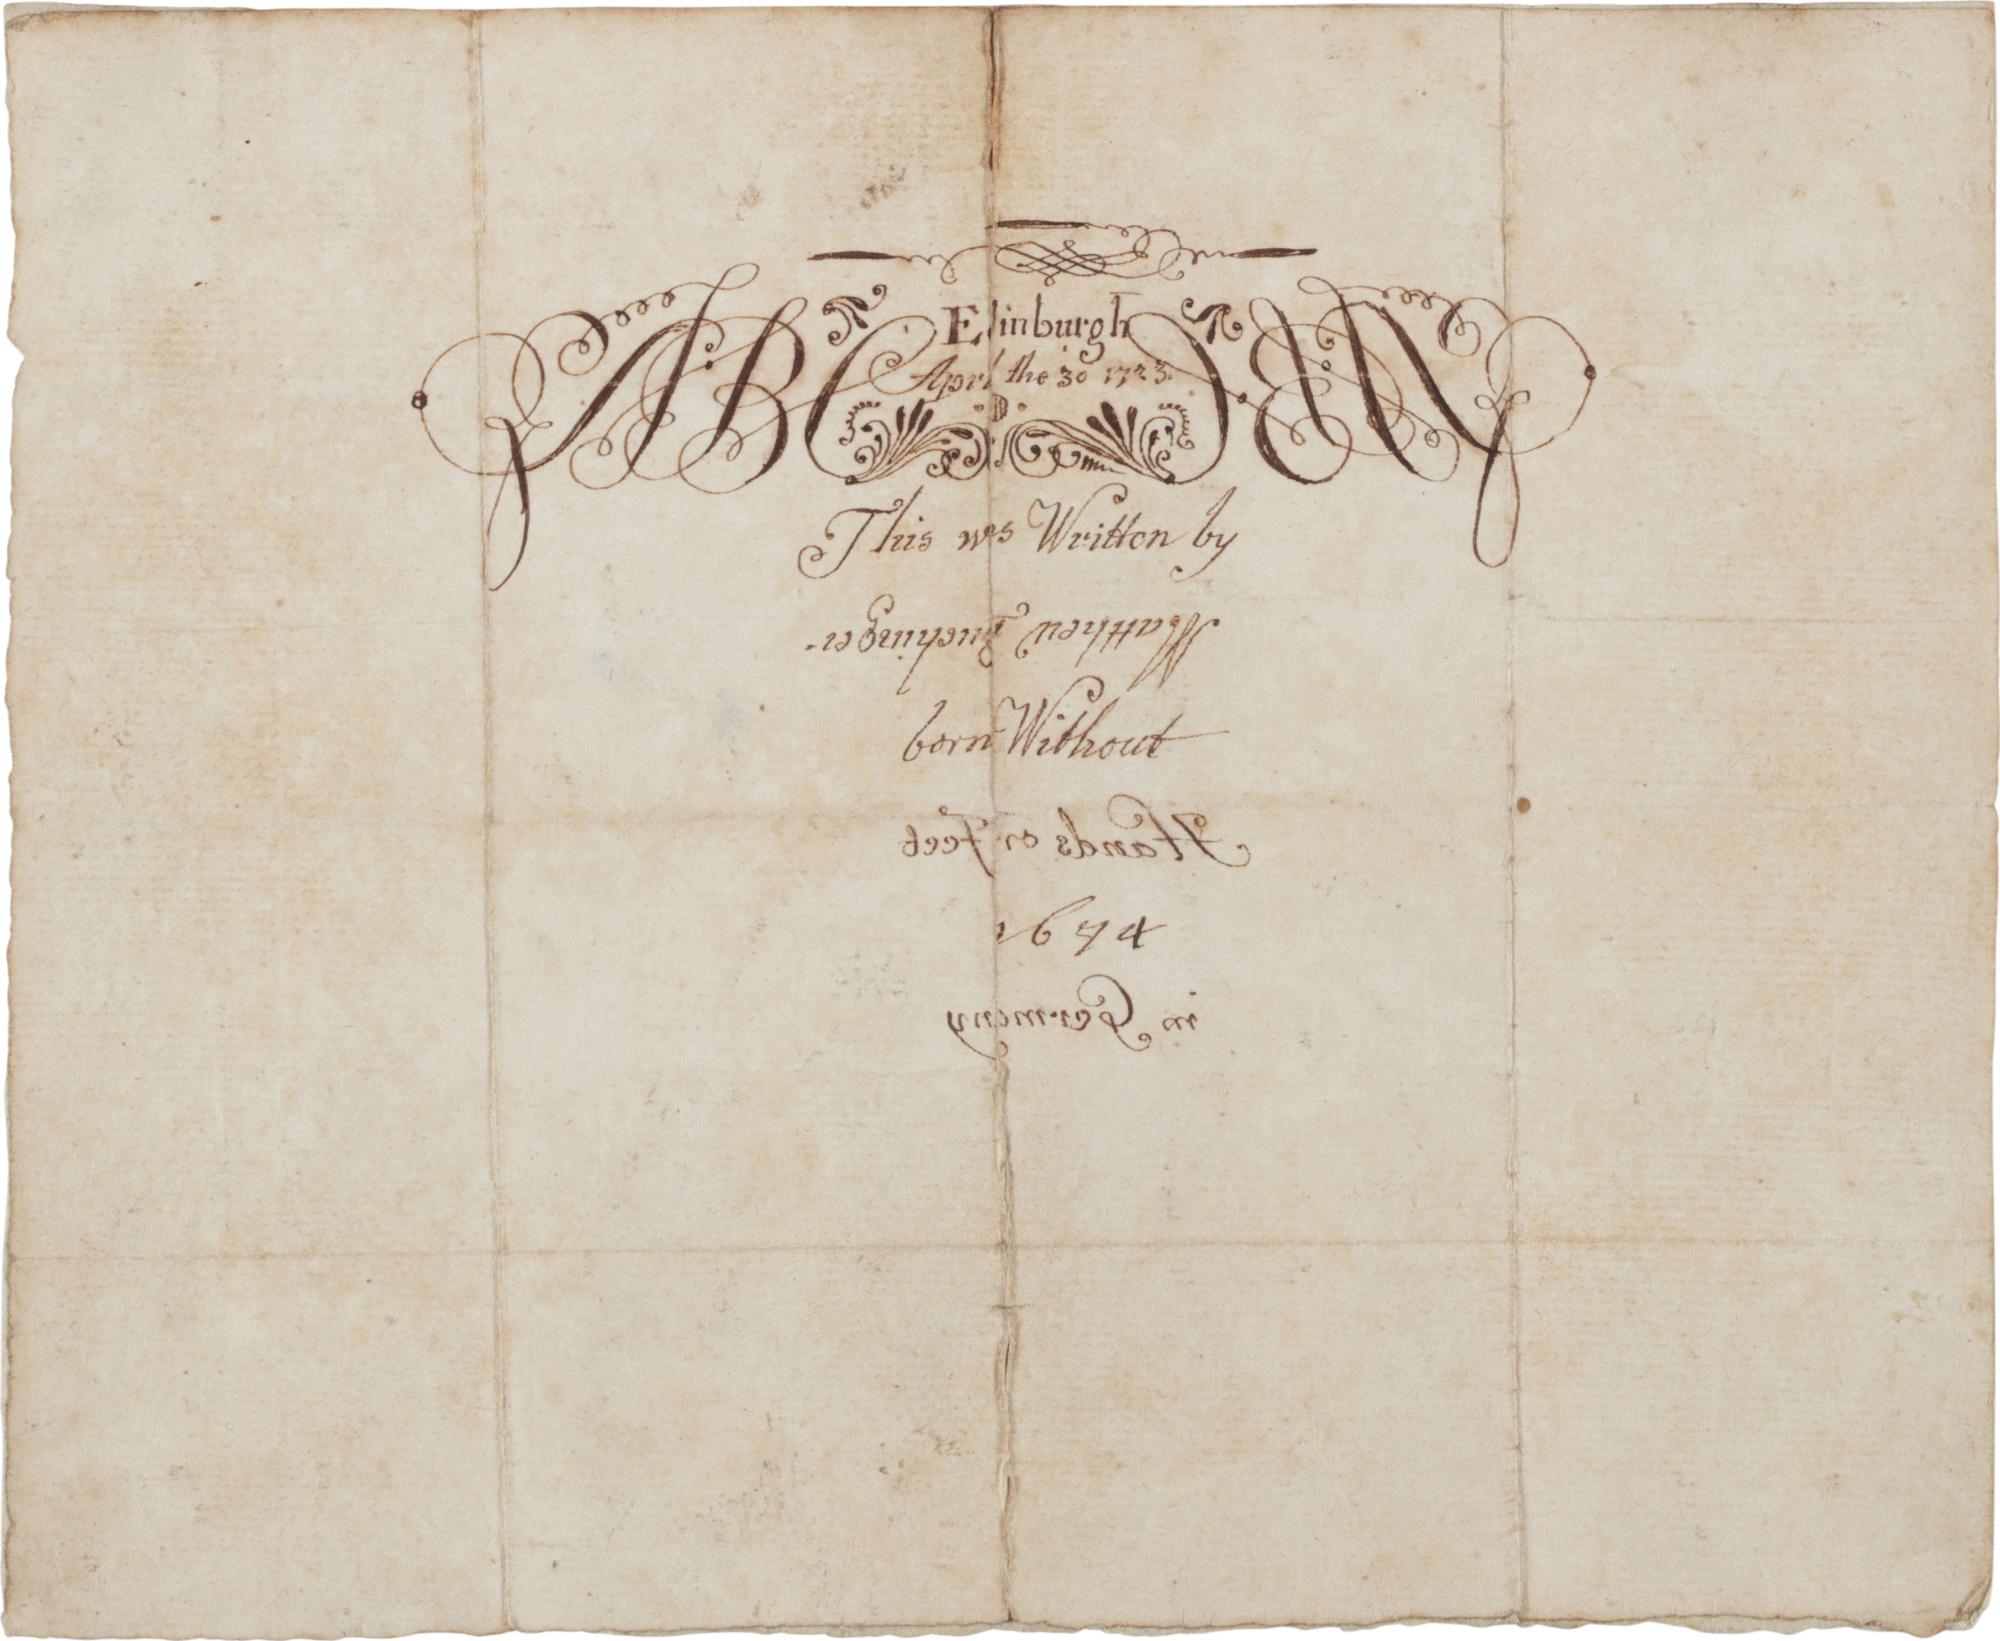 ABC ABC
Edinburgh
April the 30 1723.
This was Written by
Matthew Buchinger.
born Without
Hands or Feet
1674
in Germany